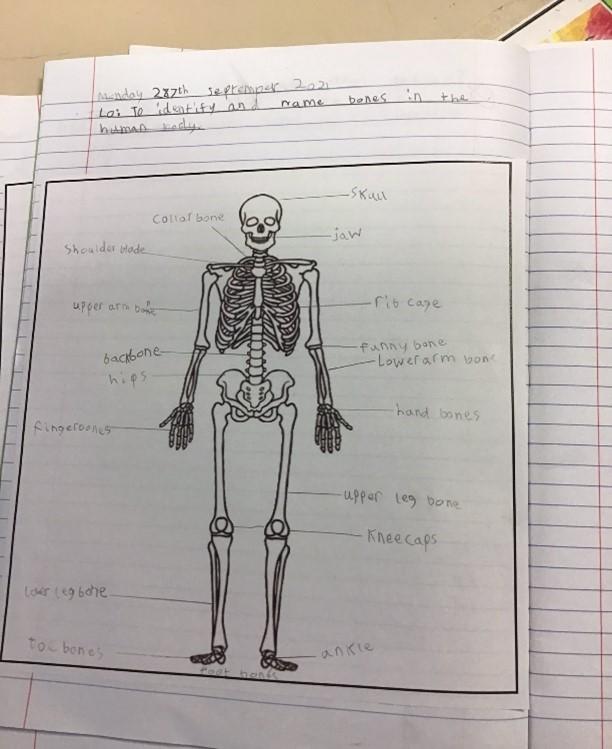 Monday 287th September 2021
Lo: To identify and name bones in the
human body.
Skull
Collar bone
jaw
Shoulder blade
upper arm bone
rib cage
funny bone
backbone
Lower arm bone
hips
hand bones
fingerbones
upper leg bone
Kneecaps
lower leg bone
toe bones
ankle
foot bones